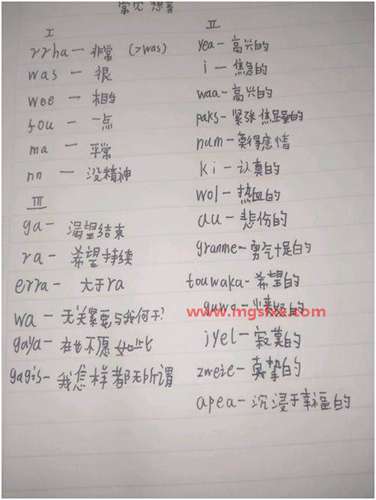 常见想音
I
rrha — 非常 (>was)
was — 很
wee — 相当
fou — 一点
ma — 平常
nn — 没精神
III
ga — 渴望结束
ra — 希望持续
erra — 大于ra
wa — 无关紧要与我何干?
gaya — 在也不愿如此
gagis — 我怎样都无所谓
II
yea — 高兴的
i — 焦急的
waa — 高兴的
paks — 紧张
num — 莫得感情
ki — 认真的
wol — 热血的
au — 悲伤的
granme — 勇气十足的
touwaka — 希望的
guwo
www.mgshe.com
jyel — 寂寞的
zweie — 真挚的
apea — 沉浸于幸福的